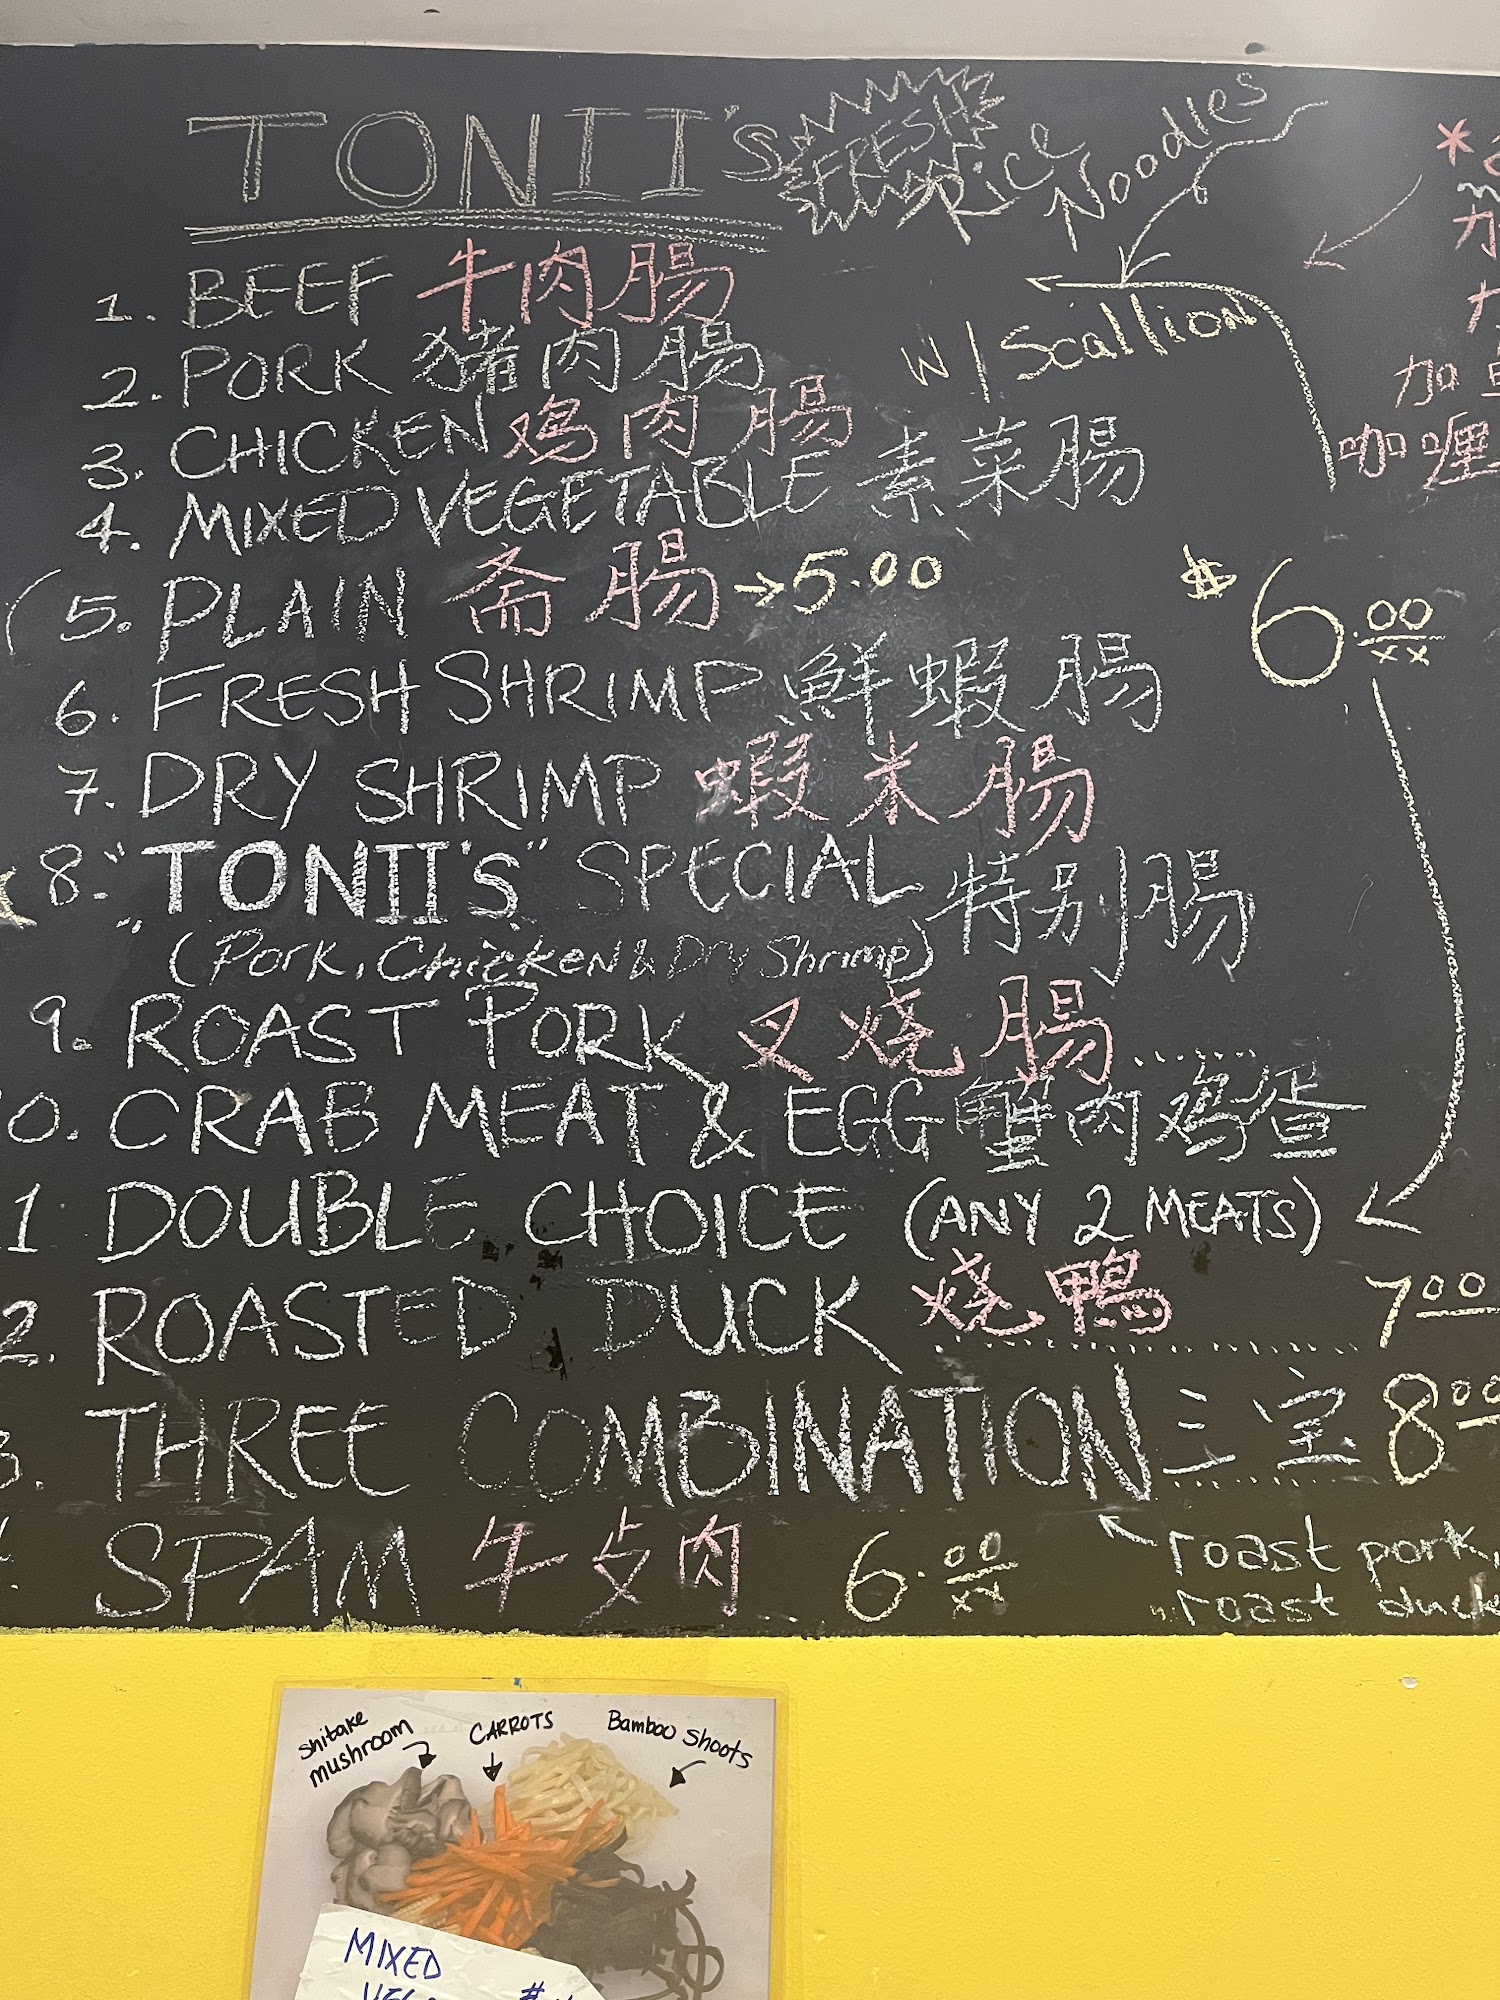 TONII's FRESH Rice Noodles
W/ Scallion
1. BEEF 牛肉腸
2. PORK 猪肉腸
3. CHICKEN 鸡肉腸
4. MIXED VEGETABLE 素菜腸
5. PLAIN 斋腸 → 5.00
$6.00
xx
6. FRESH SHRIMP 鮮蝦腸
7. DRY SHRIMP 蝦米腸
8. "TONII's" SPECIAL 特别腸
(Pork, Chicken & Dry Shrimp)
9. ROAST PORK 叉烧腸
0. CRAB MEAT & EGG 蟹肉鸡蛋
1 DOUBLE CHOICE (ANY 2 MEATS)
2. ROASTED DUCK 烧鴨 7.00
3. THREE COMBINATION 三宝 8.00
SPAM 牛肉 6.00
xx
roast pork,
roast duck
加
咖喱
Shitake mushroom
CARROTS
Bamboo shoots
MIXED